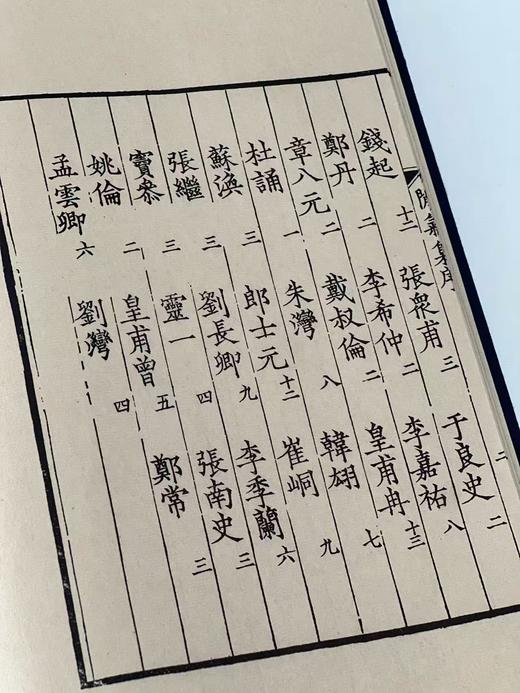 閒氣集序 二
錢起 十二 張衆甫 三 于良史 二
鄭丹 二 李希仲 二 李嘉祐 八
章八元 二 戴叔倫 二 皇甫冉 十三
杜誦 一 朱灣 八 韓翃 七
蘇渙 三 郎士元 十二 崔峒 九
張繼 三 劉長卿 九 李季蘭 六
竇參 三 靈一 四 張南史 三
姚倫 二 皇甫曾 五 鄭常 三
孟雲卿 六 劉灣 四